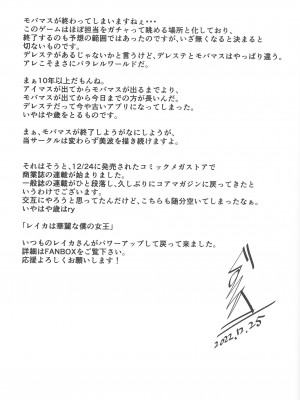 モバマスが終わってしまいますねぇ・・・
このゲームはほぼ担当をガチャって眺める場所と化しており、
終了するのも予想の範囲ではあったのですが、いざ無くなると決まると
切ないものです。
デレステがあるじゃないかと言うけど、デレステとモバマスはやっぱり違う。
アレこそまさにパラレルワールドだ。
まぁ10年以上だもんね。
アイマスが出てからモバマスが出るまでより、
モバマスが出てから今日までの方が長いんだ。
デレステだって今や古いアプリになってしまった。
いやはや歳をとるものです。
まぁ、モバマスが終了しようがなにしようが、
当サークルは変わらず美波を推しますけどね。
それはそうと、12/24に発売されたコミックメガストアで
商業誌の連載が始まりました。
一般誌の連載がひと段落し、久しぶりにコアマガジンに戻ってきたと
いうわけでございます。
交互にやろうと思ってたんだけど、こちらも随分空いてしまったなぁ。
いやはや歳はry
「レイカは華麗な僕の女王」
いつものレイカさんがパワーアップして戻って来ました。
詳細はFANBOXをご覧下さい。
応援よろしくお願いします！
2022.12.25